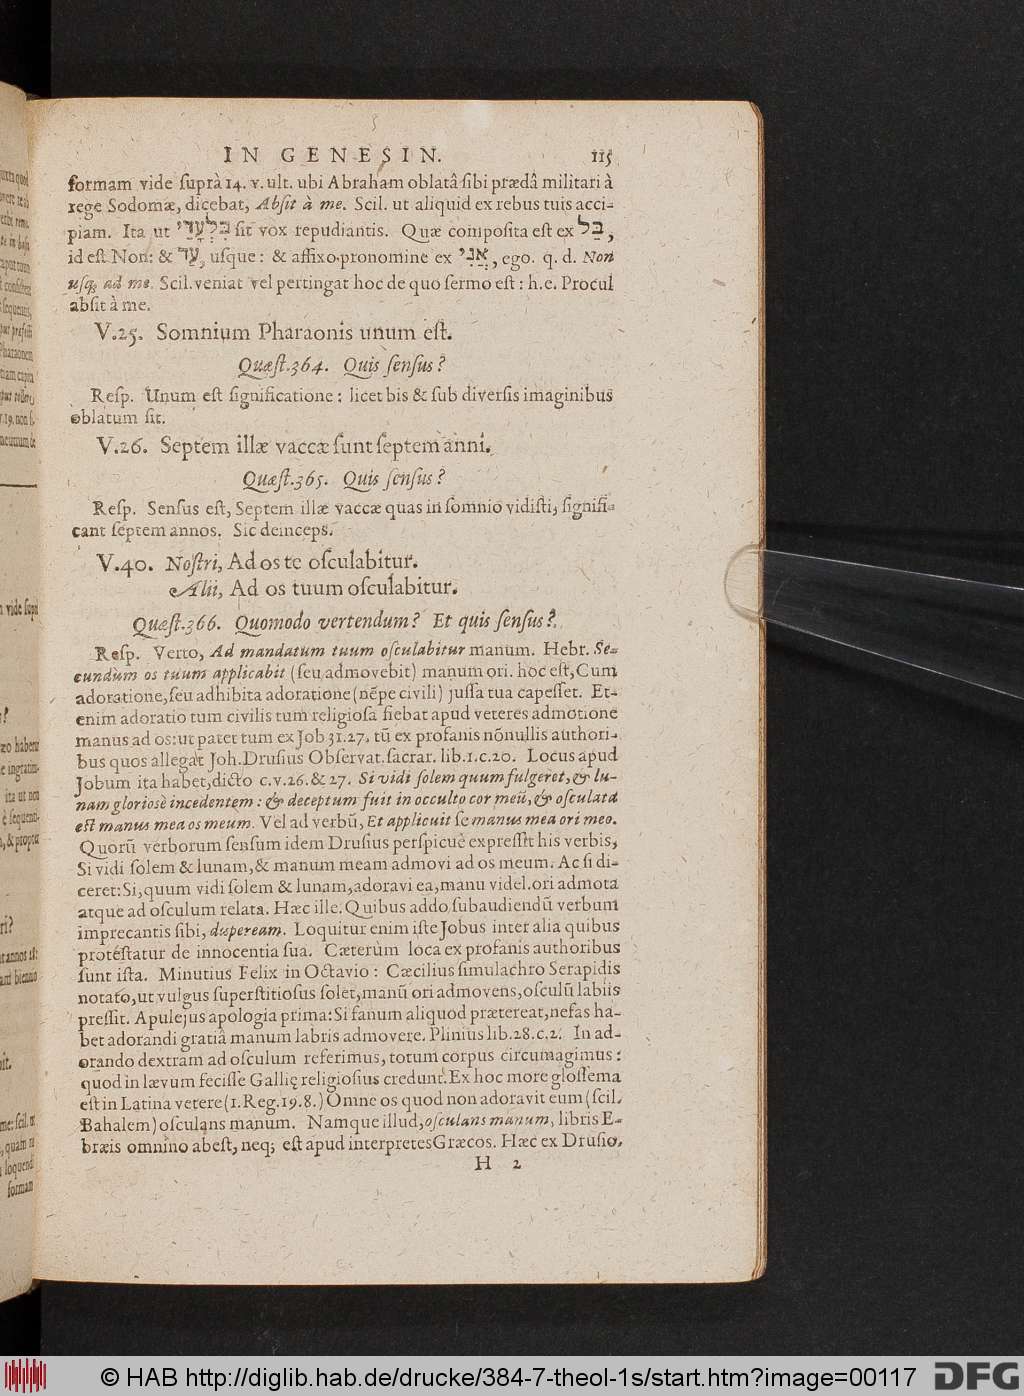 IN GENESIN. 115
formam vide suprà 14. v. ult. ubi Abraham oblatâ sibi prædâ militari à
rege Sodomæ, dicebat, Absit à me. Scil. ut aliquid ex rebus tuis acci-
piam. Ita ut בִּלְעָדַי sit vox repudiantis. Quæ composita est ex בַּל,
id est Non: & עַד, usque: & affixo pronomine ex אֲנִי, ego. q. d. Non
usq; ad me. Scil. veniat vel pertingat hoc de quo sermo est: h.e. Procul
absit à me.
V.25. Somnium Pharaonis unum est.
Quæst.364. Quis sensus?
Resp. Unum est significatione: licet bis & sub diversis imaginibus
oblatum sit.
V.26. Septem illæ vaccæ sunt septem anni.
Quæst.365. Quis sensus?
Resp. Sensus est, Septem illæ vaccæ quas in somnio vidisti, signifi-
cant septem annos. Sic deinceps.
V.40. Nostri, Ad os te osculabitur.
Alii, Ad os tuum osculabitur.
Quæst.366. Quomodo vertendum? Et quis sensus?
Resp. Verto, Ad mandatum tuum osculabitur manum. Hebr. Se-
cundùm os tuum applicabit (seu admovebit) manum ori. hoc est, Cum
adoratione, seu adhibita adoratione (nēpe civili) jussa tua capesset. Et-
enim adoratio tum civilis tum religiosa fiebat apud veteres admotione
manus ad os: ut patet tum ex Job 31.27. tū ex profanis nōnullis authori-
bus quos allegat Joh. Drusius Observat. sacrar. lib.1.c.20. Locus apud
Jobum ita habet, dicto c.v.26.&27. Si vidi solem quum fulgeret, & lu-
nam gloriosè incedentem: & deceptum fuit in occulto cor meū, & osculata
est manus mea os meum. Vel ad verbū, Et applicuit se manus mea ori meo.
Quorū verborum sensum idem Drusius perspicuè expressit his verbis,
Si vidi solem & lunam, & manum meam admovi ad os meum. Ac si di-
ceret: Si, quum vidi solem & lunam, adoravi ea, manu videl. ori admota
atque ad osculum relata. Hæc ille. Quibus addo subaudiendū verbum
imprecantis sibi, dispeream. Loquitur enim iste Jobus inter alia quibus
protestatur de innocentia sua. Cæterùm loca ex profanis authoribus
sunt ista. Minutius Felix in Octavio: Cæcilius simulachro Serapidis
notato, ut vulgus superstitiosus solet, manū ori admovens, osculū labiis
pressit. Apulejus apologia prima: Si fanum aliquod prætereat, nefas ha-
bet adorandi gratiâ manum labris admovere. Plinius lib.28.c.2. In ad-
orando dextram ad osculum referimus, totum corpus circumagimus:
quod in lævum fecisse Gallię religiosius credunt. Ex hoc more glossema
est in Latina vetere (1. Reg. 19.8.) Omne os quod non adoravit eum (scil.
Bahalem) osculans manum. Namque illud, osculans manum, libris E-
bræis omnino abest, neq; est apud interpretes Græcos. Hæc ex Drusio,
H 2
© HAB http://diglib.hab.de/drucke/384-7-theol-1s/start.htm?image=00117
DFG